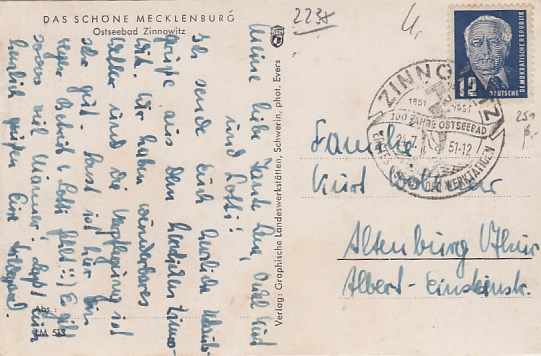 DAS SCHÖNE MECKLENBURG
Ostseebad Zinnowitz
2238
Meine liebe Tante, Onkel Kurt
und Lotti!
Ich sende Euch herzliche Urlaubs-
grüße aus dem herrlichen Zinno-
witz. Wir haben wunderbares
Wetter und die Verpflegung ist
sehr gut. Sonst ist hier ein
reger Betrieb (Lotti fehlt!!) Es gibt
sowas viel Männer!
herzlich grüßen Eure
Abs.:
LM 513
Verlag: Graphische Landeswerkstätten, Schwerin, phot. Evers
DEUTSCHE DEMOKRATISCHE REPUBLIK
12
ZINNOWITZ
1851 1951
100 JAHRE OSTSEEBAD
51-12
DER WERKTÄTIGEN
Familie
Kurt
Altenburg Thür
Albert-Einsteinstr.